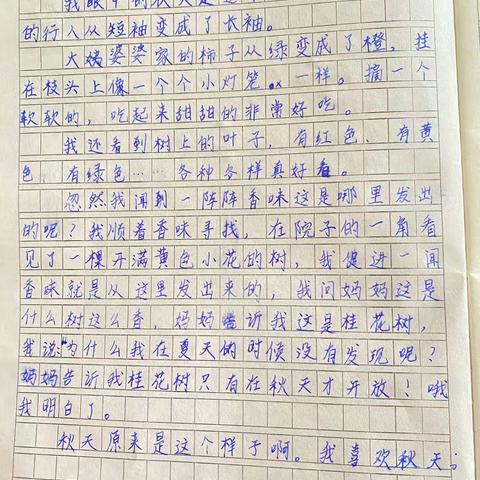 我眼中的秋天是这个
的行人从短袖变成了长袖。
大姨婆婆家的柿子从绿变成了橙，挂
在枝头上像一个个小灯笼一样。摘一个
软软的，吃起来甜甜的非常好吃。
我还看到树上的叶子，有红色、有黄
色、有绿色……各种各样真好看。
忽然我闻到一阵阵香味这是哪里发出
的呢？我顺着香味寻找，在院子的一角看
见了一棵开满黄色小花的树，我走进一闻
香味就是从这里发出来的，我问妈妈这是
什么树这么香，妈妈告诉我这是桂花树，
我说："为什么我在夏天的时候没有发现呢？
妈妈告诉我桂花树只有在秋天才开放！哦
我明白了。
秋天原来是这个样子啊。我喜欢秋天。